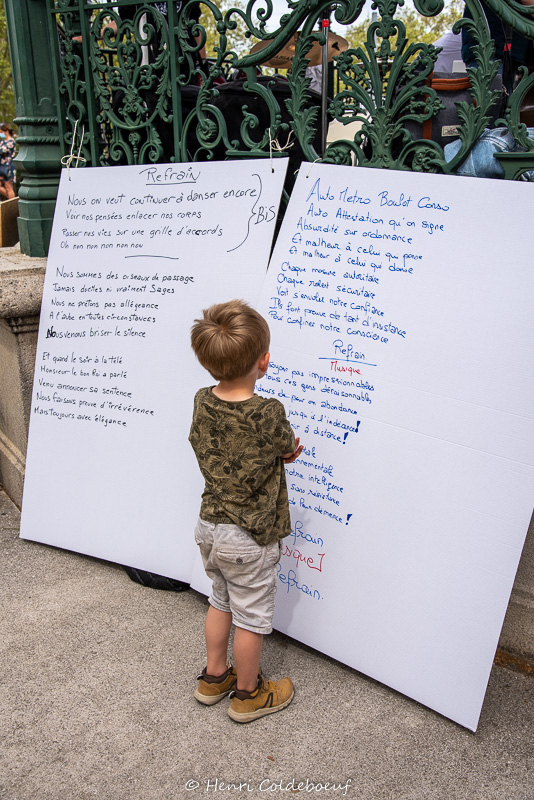 Refrain
Nous on veut continuer à danser encore
Voir nos pensées enlacer nos corps
Passer nos vies sur une grille d'accords
Oh non non non non non
BIS
Nous sommes des oiseaux de passage
Jamais dociles ni vraiment sages
Nous ne prêtons pas allégeance
A l'aube en toutes circonstances
Nous venons briser le silence
Et quand le soir à la télé
Monsieur le bon Roi a parlé
Venu annoncer sa sentence
Nous faisons preuve d'irrévérence
Mais toujours avec élégance
Auto Métro Boulot Conso
Auto Attestation qu'on signe
Absurdité sur ordonnance
Et malheur à celui qui pense
Et malheur à celui qui danse
Chaque mesure autoritaire
Chaque relent sécuritaire
Voit s'envoler notre confiance
Ils font preuve de tant d'insistance
Pour confiner notre conscience
Refrain
Musique
pas impressionnables
ces gens déraisonnables
de peur en abondance
jusqu'à l'indécence
à distance !
notre intelligence
sans résistance
de leur démence !
Refrain
usique]
Refrain.
© Henri Coldeboeuf